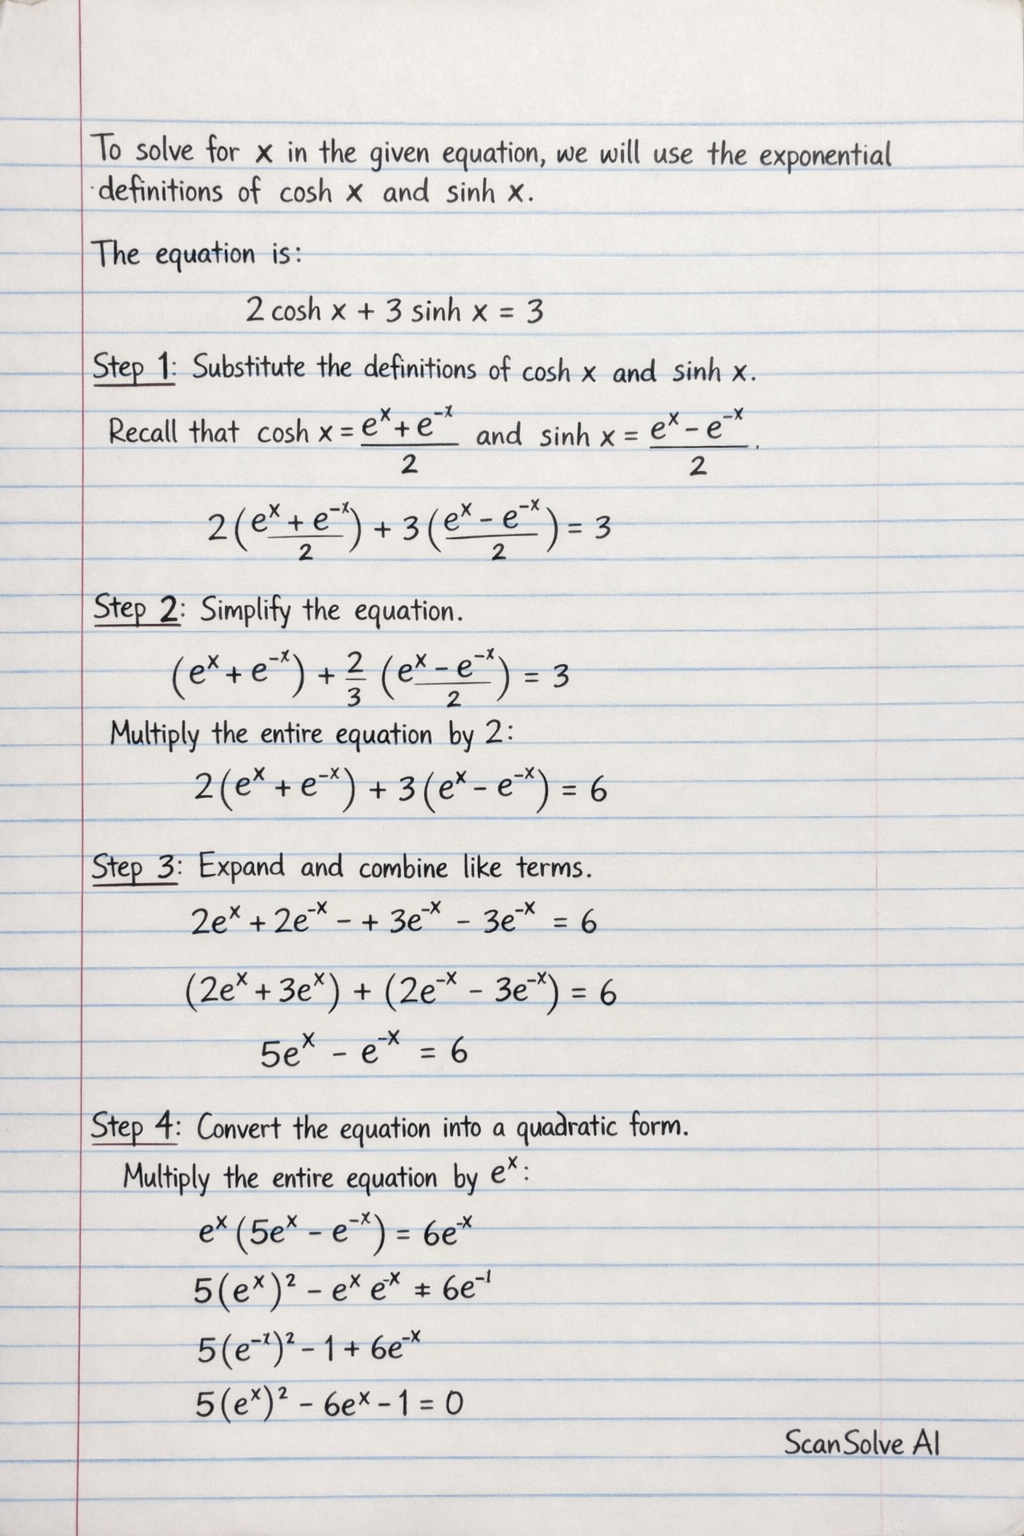 To solve for x in the given equation, we will use the exponential
definitions of cosh x and sinh x.
The equation is:
2 cosh x + 3 sinh x = 3
Step 1: Substitute the definitions of cosh x and sinh x.
Recall that cosh x = (e^x + e^-x)/2 and sinh x = (e^x - e^-x)/2.
2((e^x + e^-x)/2) + 3((e^x - e^-x)/2) = 3
Step 2: Simplify the equation.
(e^x + e^-x) + 2/3 ((e^x - e^-x)/2) = 3
Multiply the entire equation by 2:
2(e^x + e^-x) + 3(e^x - e^-x) = 6
Step 3: Expand and combine like terms.
2e^x + 2e^-x - + 3e^-x - 3e^-x = 6
(2e^x + 3e^x) + (2e^-x - 3e^-x) = 6
5e^x - e^-x = 6
Step 4: Convert the equation into a quadratic form.
Multiply the entire equation by e^x:
e^x (5e^x - e^-x) = 6e^-x
5(e^x)^2 - e^x e^-x ≠ 6e^-1
5(e^-x)^2 - 1 + 6e^-x
5(e^x)^2 - 6e^x - 1 = 0
ScanSolve AI